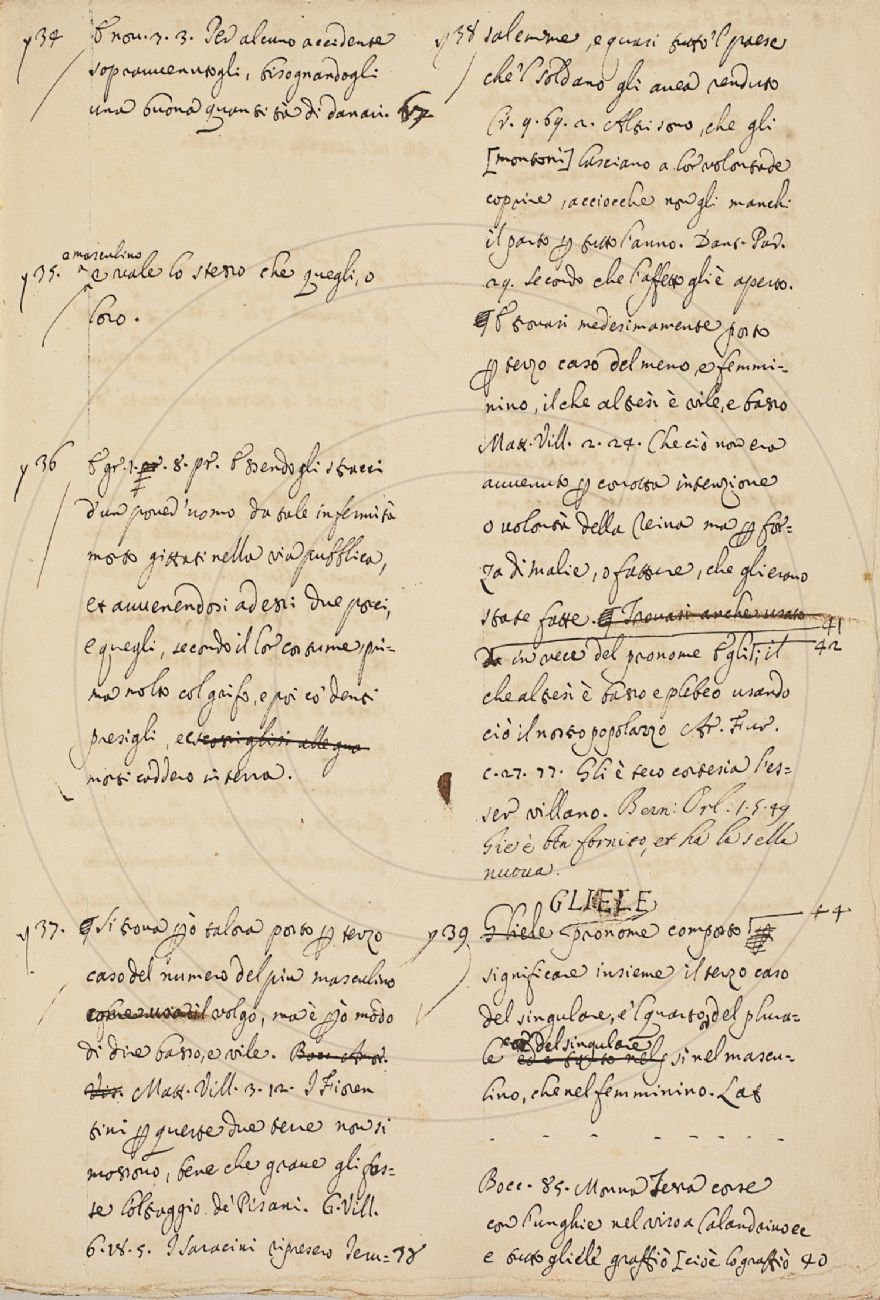 y 34 E nov. 3. 3. Per alcuno accidente
sopravvenutogli, bisognandogli
una buona quantità di danari.
y 35. a masculino
2 vale lo stesso che quegli, o
loro.
y 36 E gr. 1. 8. pr. Essendo gli stracci
d'un pover' uomo da tale infermità
morto gittati nella via pubblica,
et avvenendosi ad essi due porci,
e quegli, secondo il lor costume, pri-
ma molto col grifo, e poi co' denti
presigli, et
morti caddero in terra.
y 37. Si trova però talora posto per terzo
caso del numero del più masculino
volgo, ma è però modo
di dire basso, e vile. Bocc. Amor.
Vis. Matt. Vill. 3. 12. I Fioren
tini per queste due terre non si
mossono, bene che grave gli fos-
se l'oltraggio de' Pisani. G. Vill.
6. 18. 5. I Saracini ripresero Jeru= 38
y 38 salemme, e quasi tutto 'l paese
che 'l soldano gli avea renduto
Cr. 9. 69. 2. Altri sono, che gli
[montoni] lasciano a lor volontade
coprire, acciocche non gli manchi
il parto per tutto l'anno. Dant. Par.
29. Secondo che l'affetto gli è aperto.
E trovasi medesimamente posto
per terzo caso del meno, e femmi=
nino, il che altresì è vile, e basso
Matt. Vill. 2. 24. Che ciò non era
avvenuto per corrotta intenzione
o volontà della Reina ma per for=
za di malie, o fatture, che gli erano
state fatte. Trovasi anche usato 41
in vece del pronome Egli; il 42
che altresì è basso e plebeo usando
ciò il nostro popolazzo Ar. Fur.
c. 27. 77. Gli è teco cortesia l'es=
ser villano. Bern: Orl. 1. 5. 49
Gli è ben fornito, et ha la sella
nuova.
GLIELE
y 39 Gliele pronome composto 44
significare insieme il terzo caso
del singulare, e 'l quarto, del plura-
le del singulare
si nel mascu-
lino, che nel femminino. Lat
- - - - - - - -
Bocc. 85. Monna Tessa corse
con l'unghie nel viso a Calandrino ec
e tutto gliele graffiò [cioè lo graffiò 40